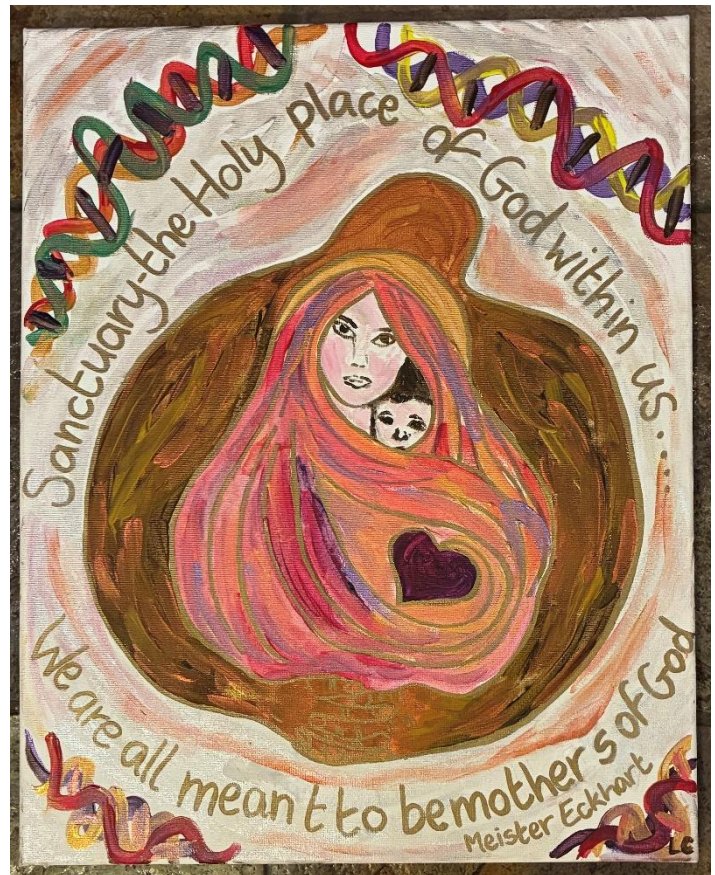 Sanctuary-the Holy place of God within us....
We are all meant to be mothers of God
Meister Eckhart
LC